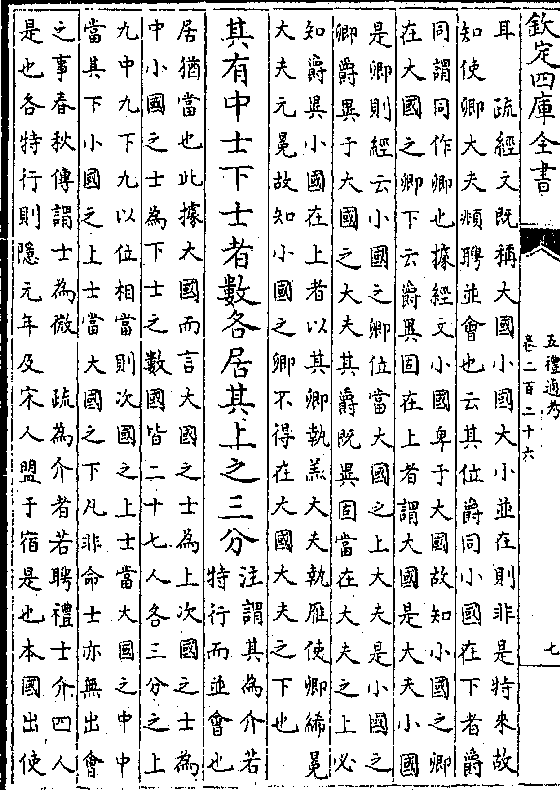 欽定四庫全書
五禮通考
卷二百二十六
七
耳　疏經文既稱大國小國大小並在則非是特來故
知使卿大夫頫聘並會也云其位爵同小國在下者爵
同謂同作卿也據經文小國卑于大國故知小國之卿
在大國之卿下云爵異固在上者謂大國是大夫小國
是卿則經云小國之卿位當大國之上大夫是小國之
卿爵異于大國之大夫其爵既異固當在大夫之上必
知爵異小國在上者以其卿執羔大夫執雁使卿絺冕
大夫元冕故知小國之卿不得在大國大夫之下也
其有中士下士者數各居其上之三分
注謂其為介若
特行而並會也
居猶當也此據大國而言大國之士為上次國之士為
中小國之士為下士之數國皆二十七人各三分之上
九中九下九以位相當則次國之上士當大國之中中
當其下小國之上士當大國之下凡非命士亦無出會
之事春秋傳謂士為微　疏為介者若聘禮士介四人
是也各特行則隱元年及宋人盟于宿是也本國出使